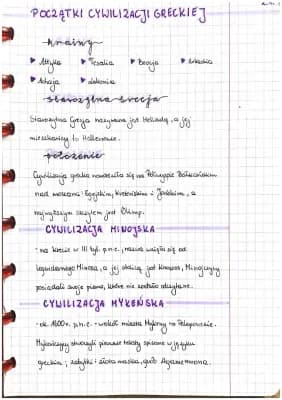 POCZĄTKI CYWILIZACJI GRECKIEJ
Krainy
Attyka Tesalia Beocja Arkadia
Achaja Lakonia
starożytna Grecja
Starożytna Grecja nazywana jest Helladą, a jej
mieszkańcy to Hellenowie.
położenie
Cywilizacja grecka rozwinęła się na Półwyspie Bałkańskim
nad morzami: Egejskim, Kreteńskim i Jońskim, a
najwyższym szczytem jest Olimp.
CYWILIZACJA MINOJSKA
- na Krecie w III tyś. p.n.e., nazwa wzięła się od
legendarnego Minosa, a jej stolicą jest Knossos, Minojczycy
posiadali swoje pismo, które nie zostało odczytane.
CYWILIZACJA MYKEŃSKA
- ok. 1600r. p.n.e. - wokół miasta Mykeny na Peloponezie.
Mykeńczycy stworzyli pierwsze teksty spisane w języku
greckim; zabytki: złota maska, grób Agamemnona.